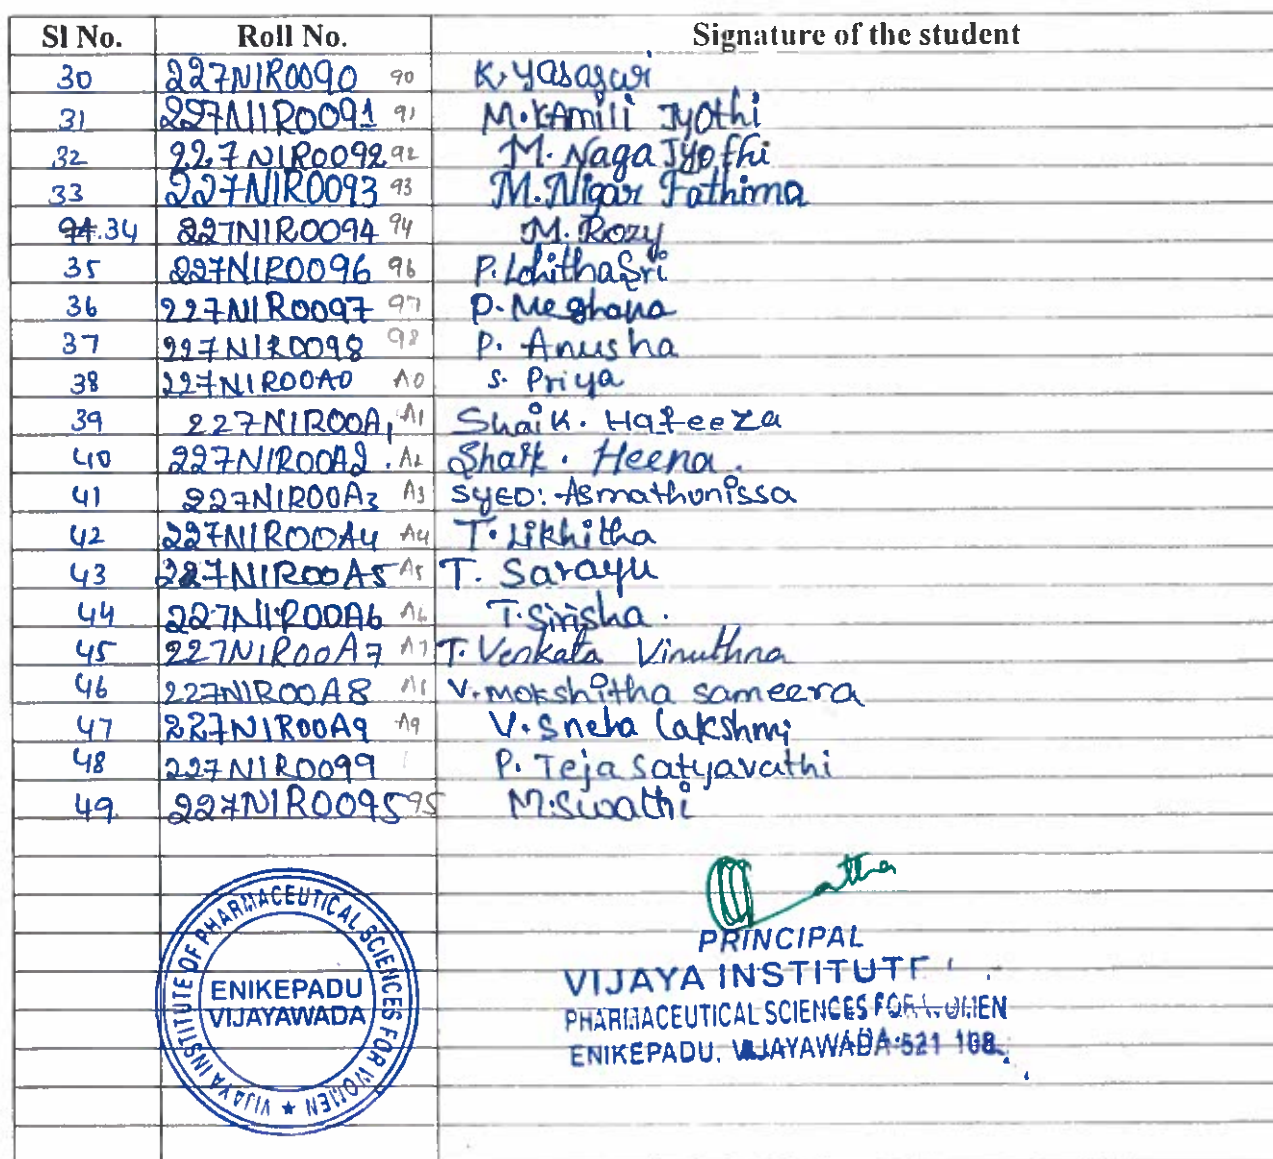 Sl No. Roll No. Signature of the student
30 227N1R0090 90 K. Yasaswi
31 227N1R0091 91 M. KAmili Jyothi
32 227N1R0092 92 M. Naga Jyothi
33 227N1R0093 93 M. Nigar Fathima
94.34 227N1R0094 94 M. Rozy
35 227N1R0096 96 P. LohithaSri
36 227N1R0097 97 P. Meghana
37 227N1R0098 98 P. Anusha
38 227N1R00A0 A0 S. Priya
39 227N1R00A1 A1 Shaik. Hafeeza
40 227N1R00A2. A2 Shaik. Heena.
41 227N1R00A3 A3 SYED: Asmathunissa
42 227N1R00A4 A4 T. Likhitha
43 227N1R00A5 A5 T. Sarayu
44 227N1R00A6 A6 T. Sirisha.
45 227N1R00A7 A7 T. Venkata Vinuthna
46 227N1R00A8 A8 V. mokshitha sameera
47 227N1R00A9 A9 V. Sneha Lakshmi
48 227N1R0099 P. Teja Satyavathi
49. 227N1R0095 95 M. Swathi
VIJAYA INSTITUTE OF PHARMACEUTICAL SCIENCES FOR WOMEN ★
ENIKEPADU
VIJAYAWADA
PRINCIPAL
VIJAYA INSTITUTE
PHARMACEUTICAL SCIENCES FOR WOMEN
ENIKEPADU, VIJAYAWADA-521 108.